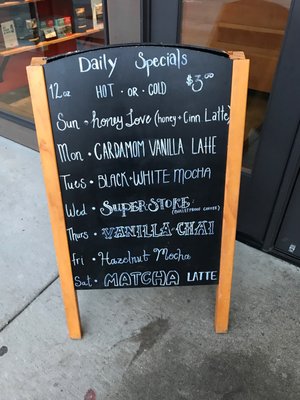 Daily Specials
12oz HOT · OR · COLD $3.00
Sun · honey Love (honey + Cinn Latte)
Mon · CARDAMOM VANILLA LATTE
Tues · BLACK + WHITE MOCHA
Wed · SUPERSTORE (BULLETPROOF COFFEE)
Thurs · VANILLA CHAI
Fri · Hazelnut Mocha
Sat · MATCHA LATTE